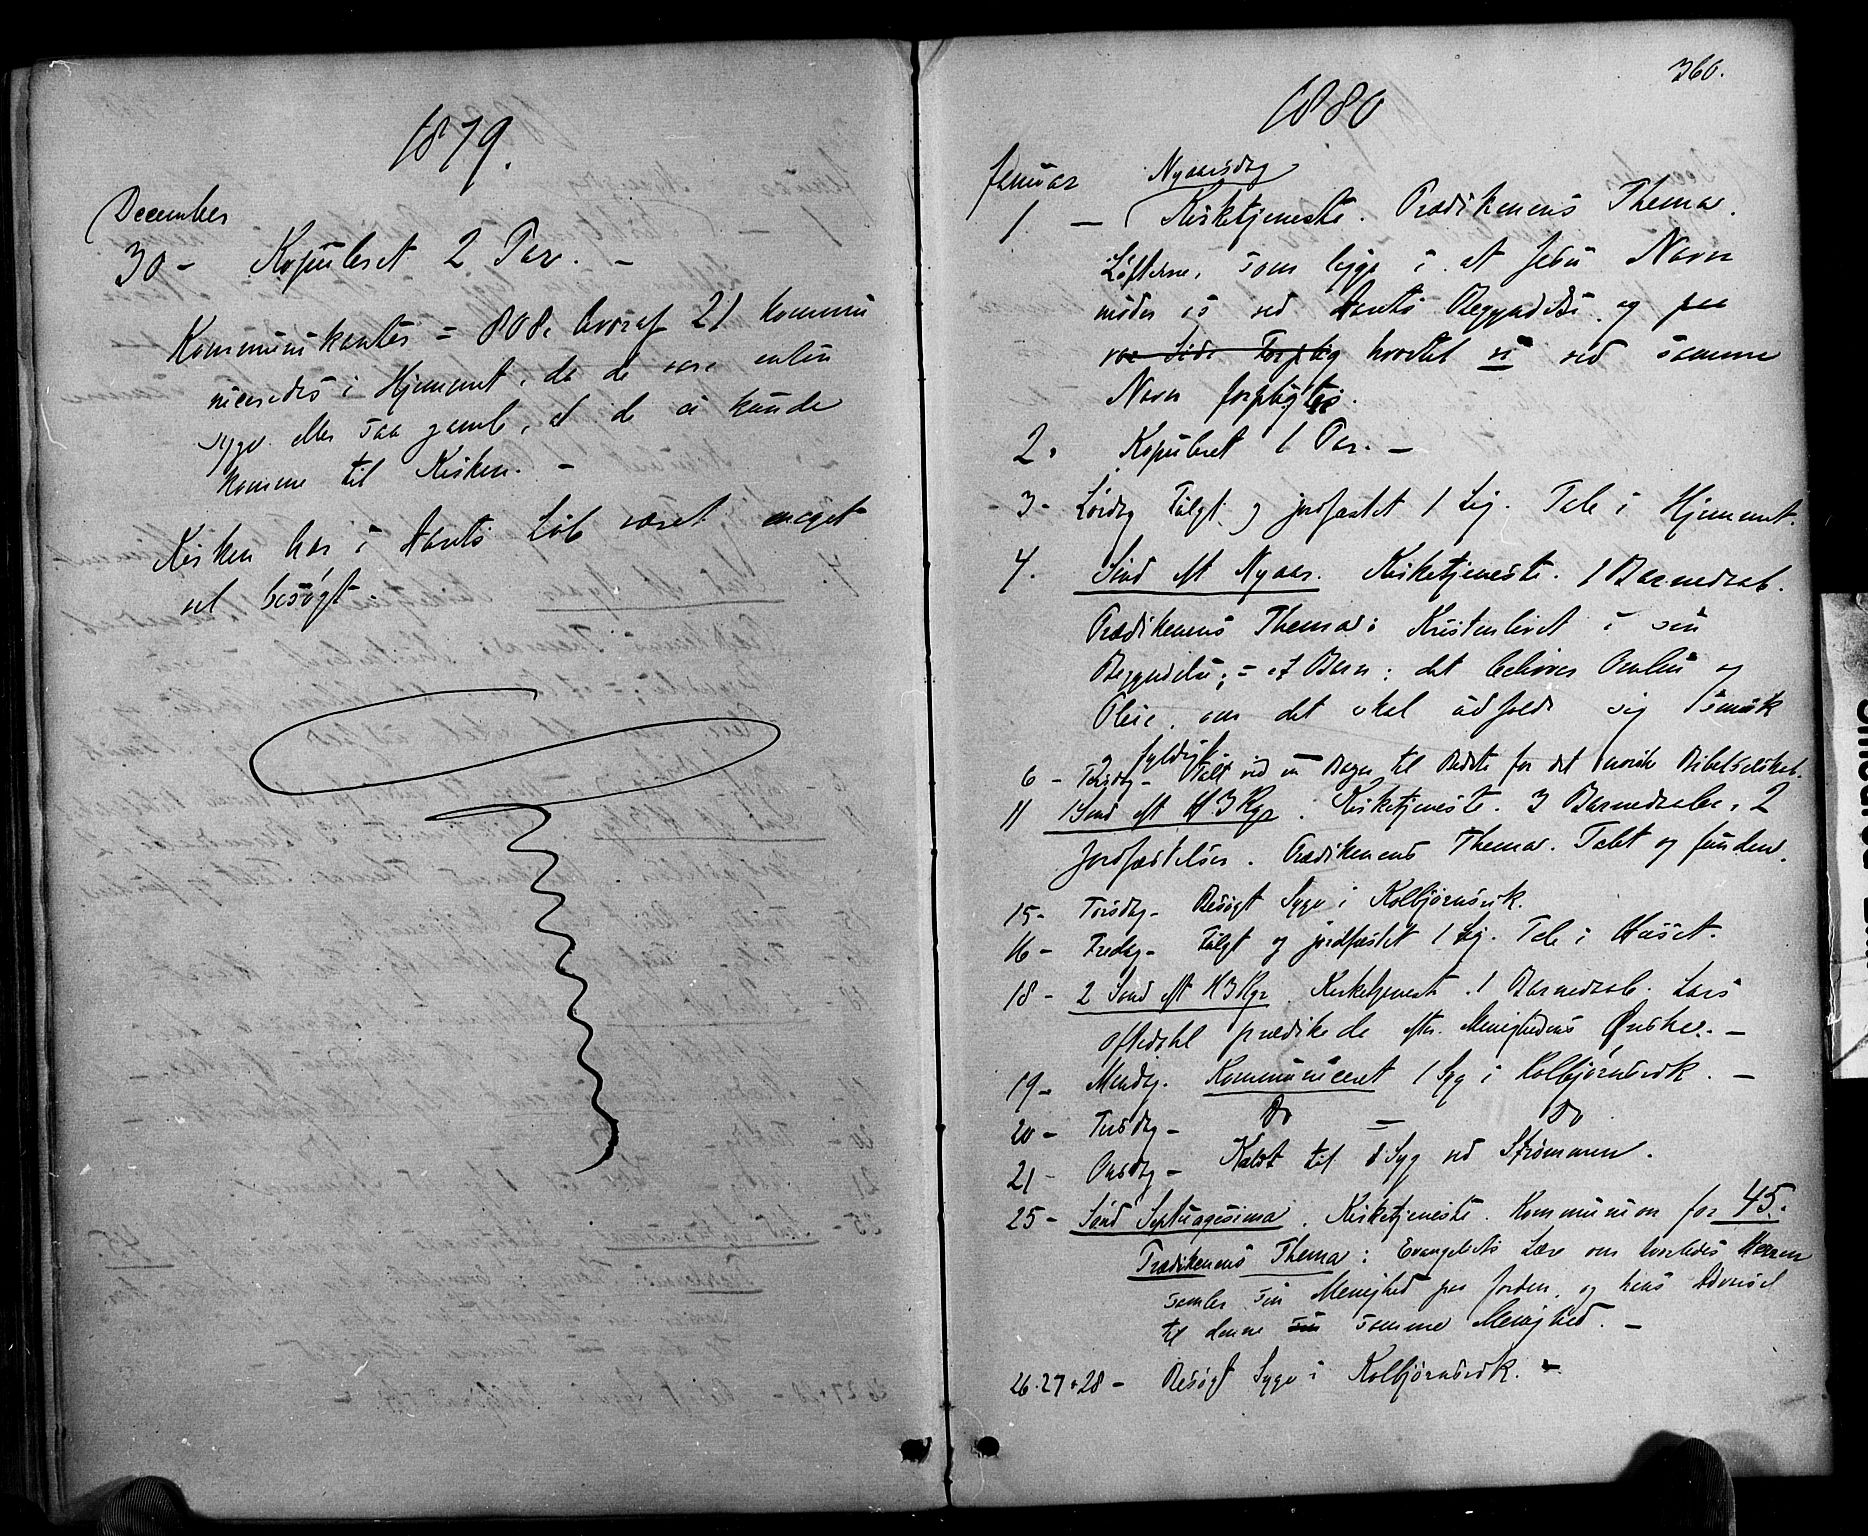 1879.
December
30 - Kopuleret 2 Par. -
Kommunikanter = 808, hvoraf 21 kommuni
niceredes i Hjemmet, da de vare enten
syge eller saa gamle, at de ei kunde
komme til Kirken. -
Kirken har i Aarets Løb været meget
vel besøgt.
360.
1880
Januar Nyaarsdag
1. - Kirketjeneste. Prædikenens Thema.
Løfterne, som ligge i, at Jesu Navn
møder os ved Aarets Begyndelse, og paa
vor Side Forplig hvortil vi ved samme
Navn forpligtes.
2. Kopuleret 1 Par. -
3 - Lørdag Fulgt og jordfæstet 1 Lig. Tale i Hjemmet.
4. Sønd eft Nyaar. Kirketjeneste. 1 Barnedaab.
Prædikenens Thema: Kristenlivet i sin
Begyndelse; = et Barn: det behøver Omhu og
Pleie, om det skal udfolde sig smuk
og fyldigt.
6 - Tirsdag - Talt ved en Bazar til Bedste for det norske Bibelselskab.
11 1 Sønd eft H3Kgr. Kirketjeneste. 3 Barnedaaber, 2
Jordfæstelser. Prædikenens Thema. Tabt og funden.
15 - Torsdag - Besøgt Syge i Kolbjørnsvik.
16 - Fredag - Fulgt og jordfæstet 1 Lig. Tale i Huset.
18 - 2 Sønd eft H3Kgr. Kirketjeneste. 1 Barnedaab. Lars
Oftedahl prædikede efter Menighedens Ønske. -
19 - Mandag. Kommuniceret 1 Syg i Kolbjørnsvik. -
20 - Tirsdag - Do - Do
21 - Onsdag - Kaldt til 1 Syg ved Strømmen.
25 - Sønd Septuagesima. Kirketjeneste. Kommunion for 45.
Prædikenens Thema: Evangeliets Lære om hvorledes Herren
samler sin Menighed paa Jorden, og hans Advarsel
til denne sin samme Menighed. -
26. 27 + 28 - Besøgt Syge i Kolbjørnsvik. -